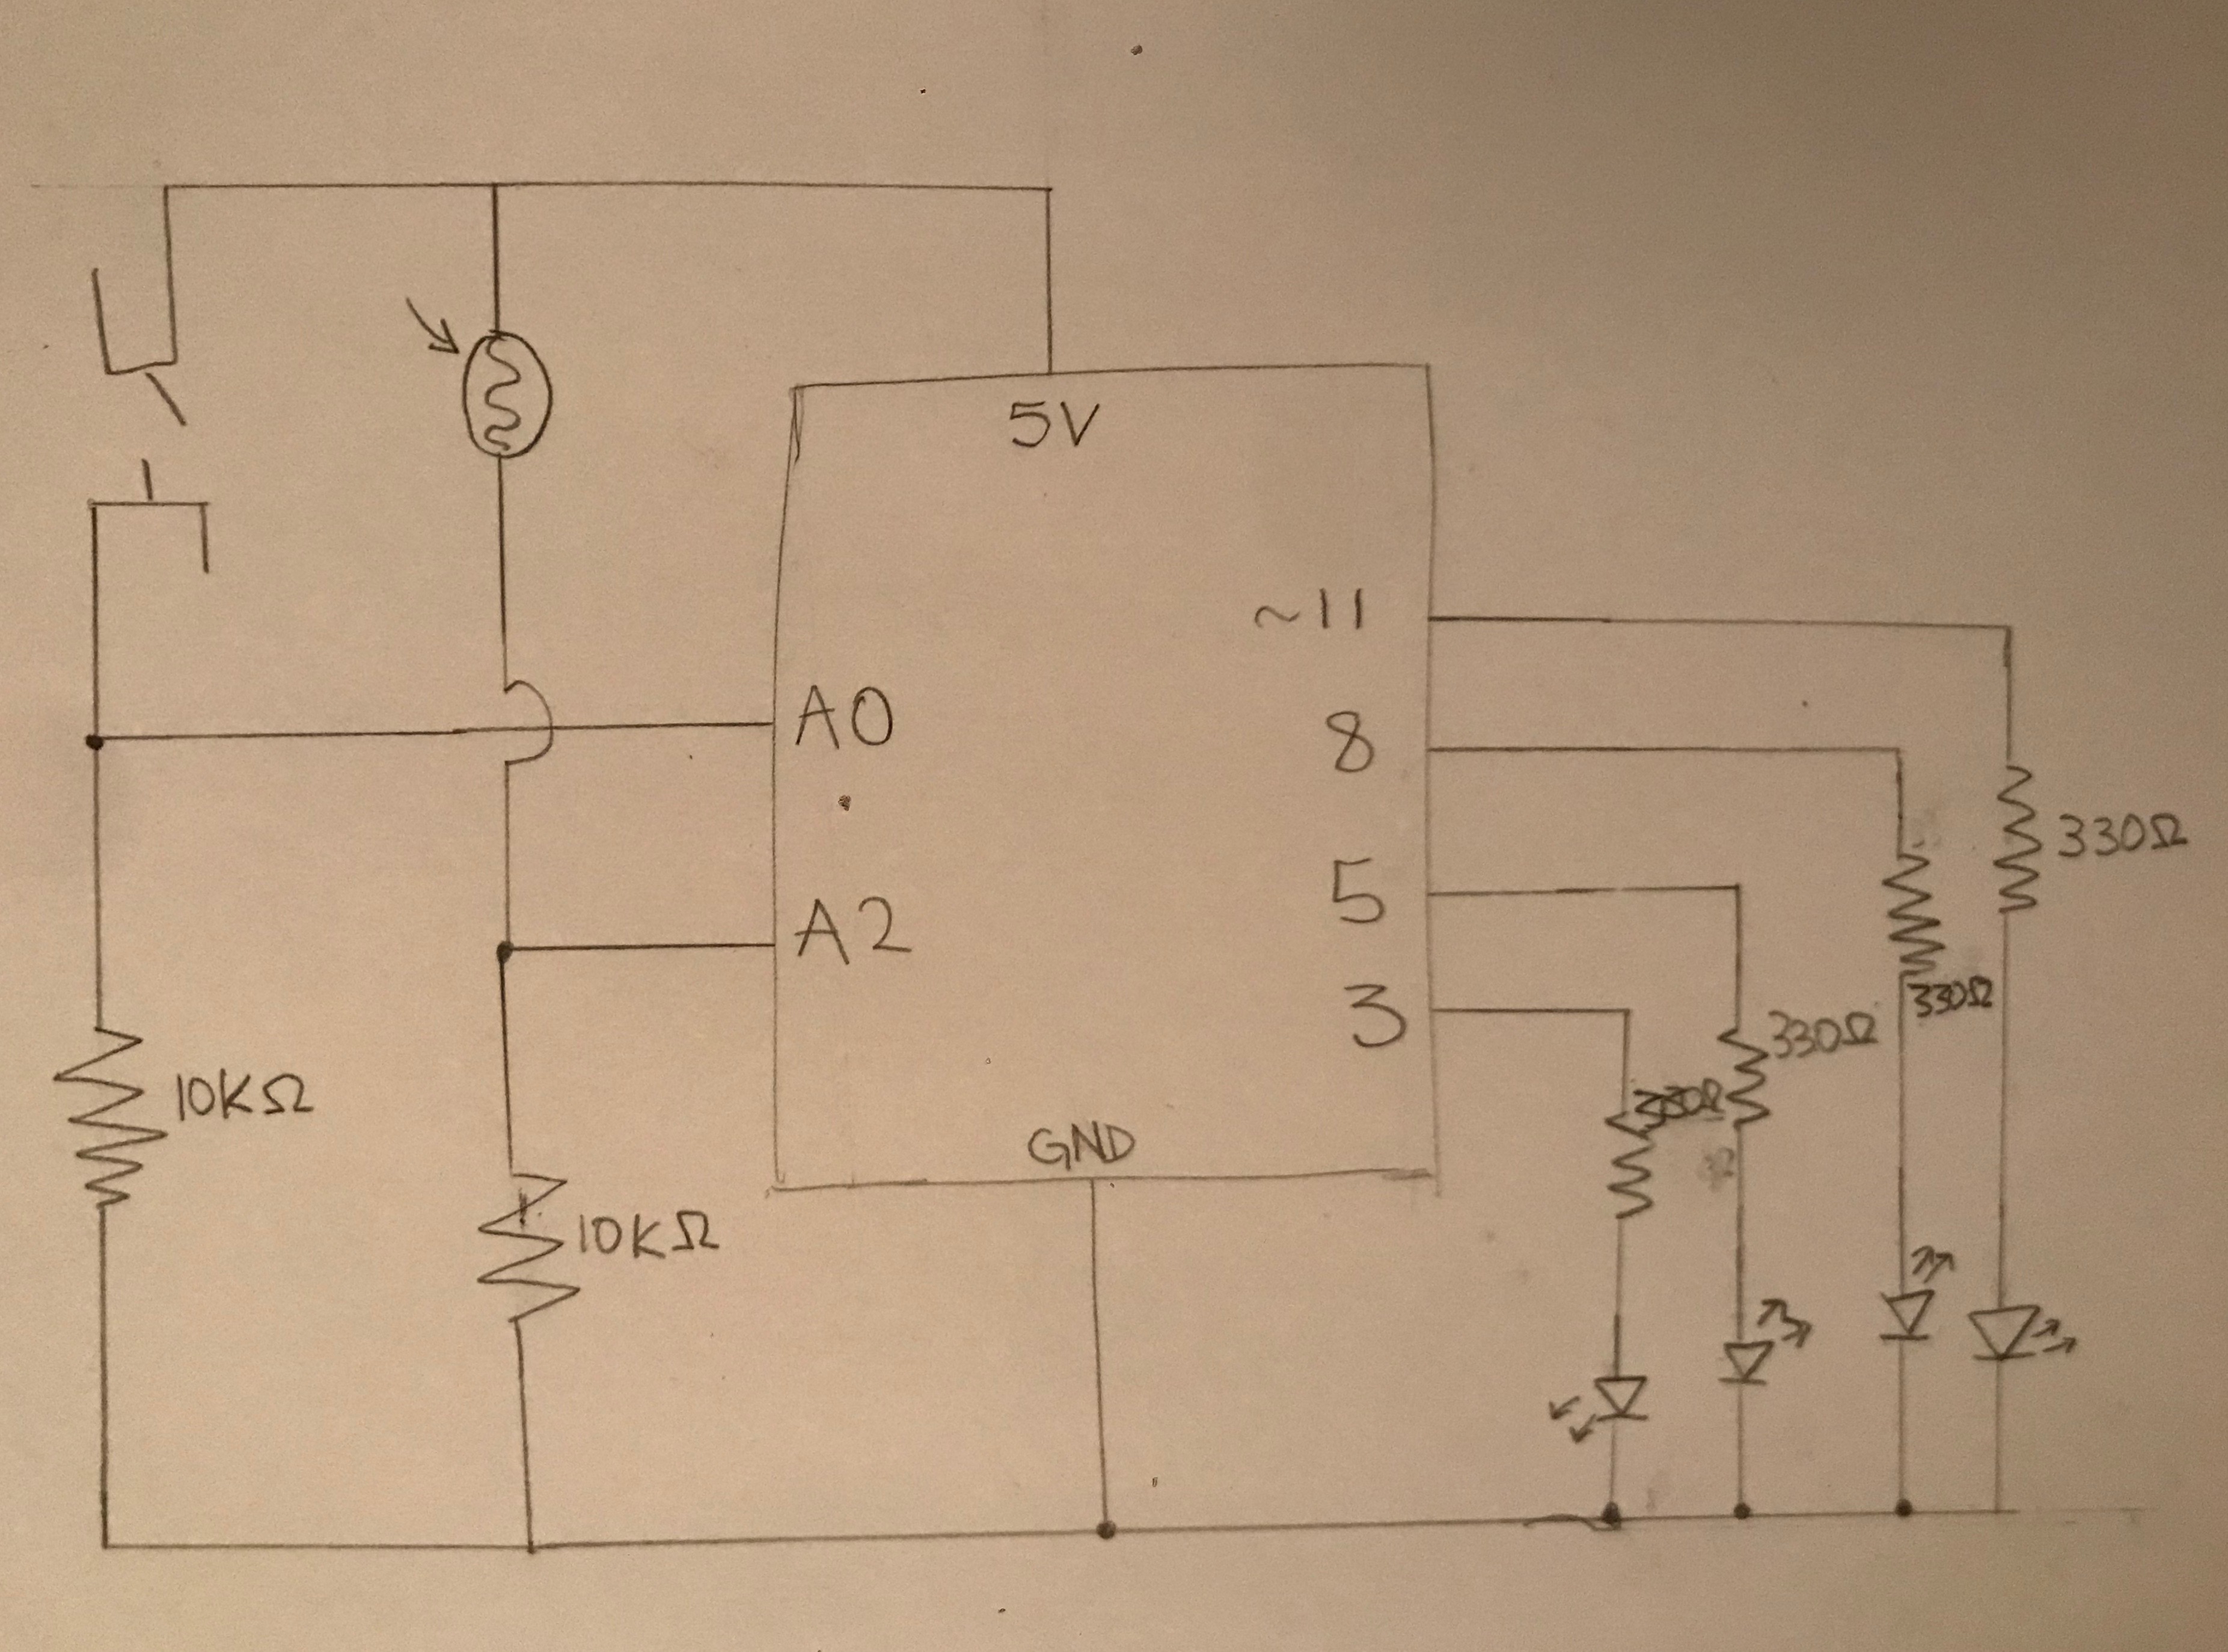 5V
~11
A0
8
330Ω
5
A2
330Ω
3
330Ω
10KΩ
330Ω
GND
10KΩ